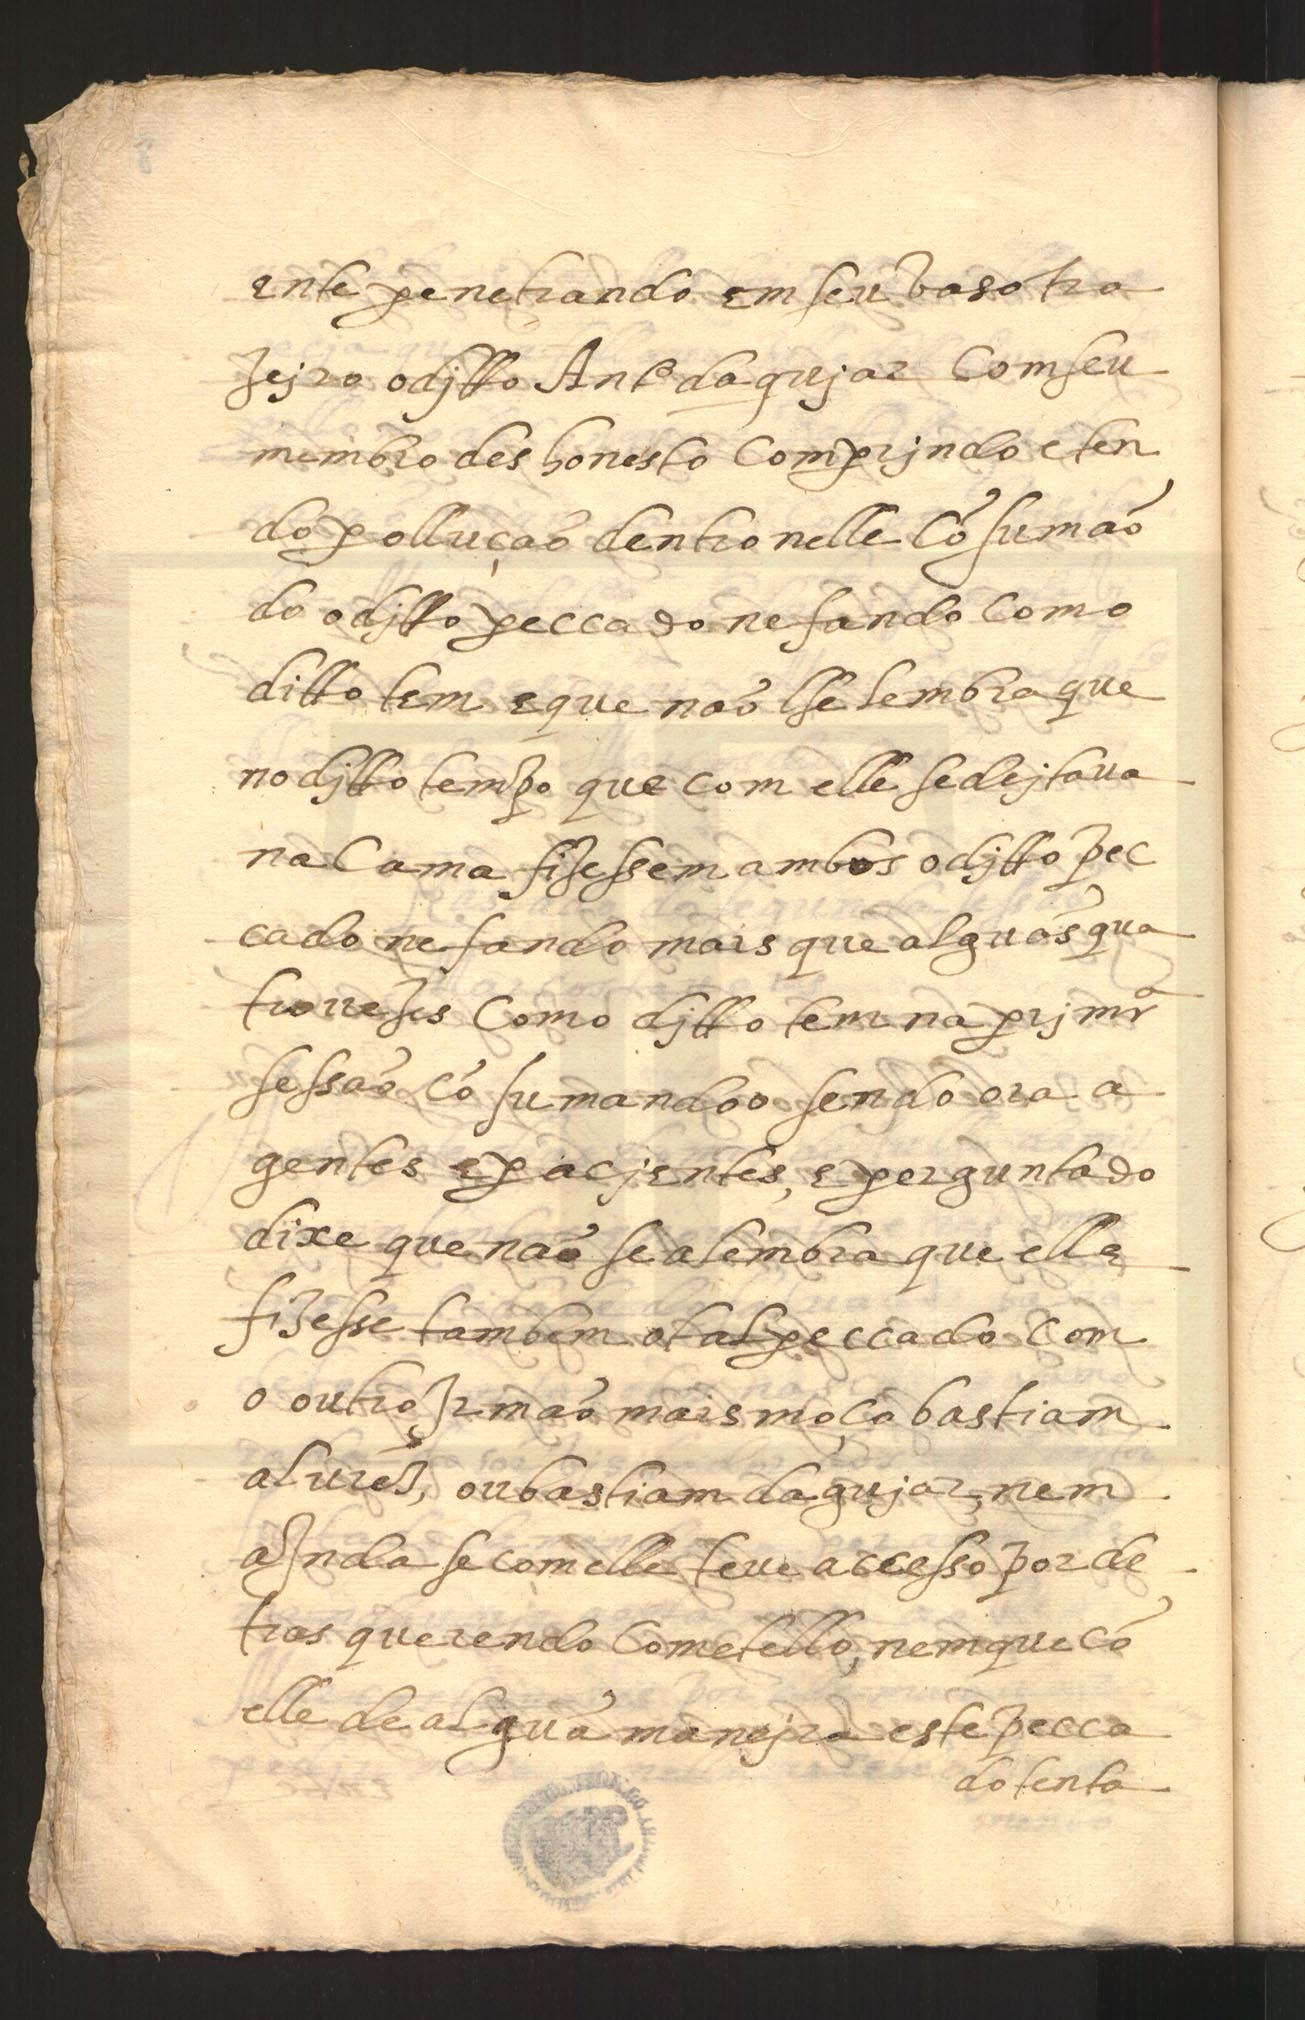 ente penetrando em seu vaso tra
zejro o djtto Ant.º dagujar com seu
membro deshonesto comprindo e ten
do polluçaõ dentro nelle cõsumaõ
do o djtto peccado nefando como
ditto tem e que naõ lhe lembra que
no djtto tempo que com elle se dejtaua
na cama fizessem ambos o djtto pec
cado nefando mais que alguãs qua
tro uezes como djtto tem na prjmrª
sessaõ cõsumandoo sendo ora a
gentes e pacjentes, e perguntado
dixe que naõ se alembra que elle
fizesse tambem o tal peccado com
o outro Irmaõ mais moço bastiam
aluréz, ou bastiam dagujar, nem
ajnda se com elle teue accesso por de
tras querendo cometello, nem que cõ
elle de alguã manejra este pecca
do tenta